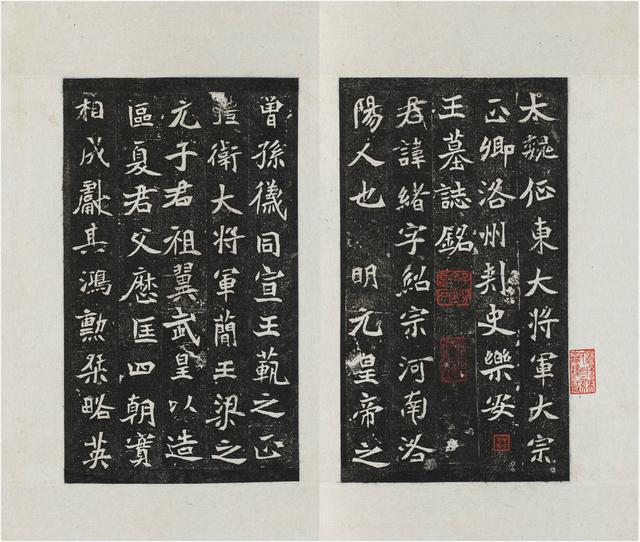 大魏征東大將軍大宗
正卿洛州刺史樂安
王墓誌銘
君諱緒字紹宗河南洛
陽人也 明元皇帝之
曾孫儀同宣王範之正
體衛大將軍簡王梁之
元子君祖翼武皇以造
區夏君父歷匡四朝寔
相成獻其鴻勳桀略英